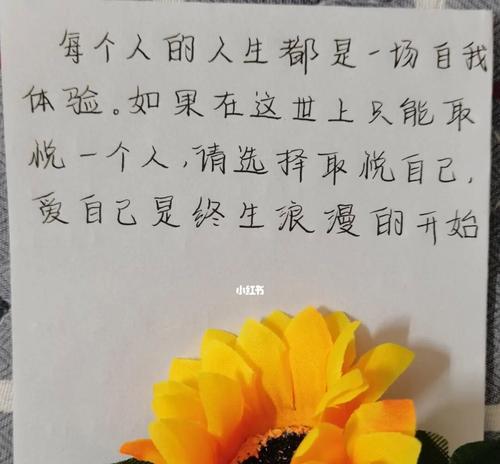 每个人的人生都是一场自我
体验。如果在这世上只能取
悦一个人,请选择取悦自己,
爱自己是终生浪漫的开始
小红书